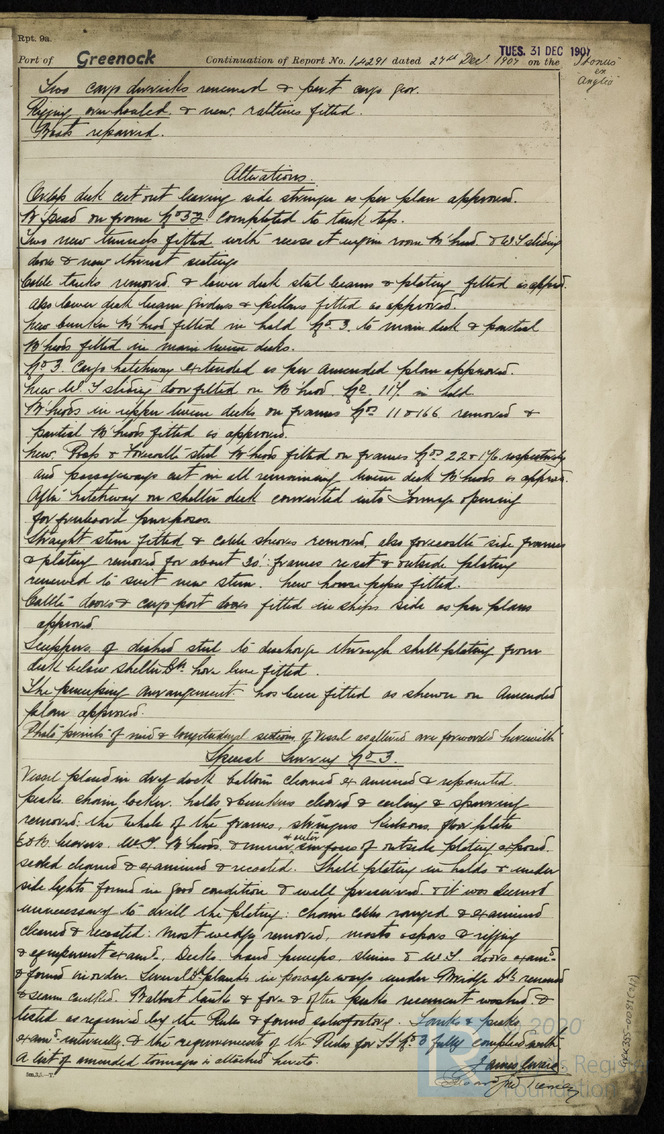 Rpt. 9a.
TUES. 31 DEC 1907
Port of Greenock Continuation of Report No. 14291 dated 27th Decr 1907 on the "Ionus"
ex
Anglia
Two cargo derricks renewed & part cargo gear.
Rigging overhauled & new ratlines fitted.
Boats repaired.
Alterations.
Orlop deck cut out leaving side stringer as per plan approved.
W. head on frame No 32 completed to tank top.
Two new tunnels fitted with recess at engine room B'head & W.T. sliding
doors & new thrust seatings
Cable tanks removed & lower deck steel beams & plating fitted as appd.
Also lower deck beam girders & pillars fitted as approved.
New bunker B'head fitted in hold No 3 to main deck & partial
B'heads fitted in main tween decks.
No 3 Cargo hatchway extended as per amended plan approved.
New W.T. sliding door fitted on B'head No 117 in hold
B'heads in upper tween decks on frames Nos 11 & 166 removed &
partial B'heads fitted as approved.
New Poop & Forecastle steel B'heads fitted on frames Nos 22 & 176 respectively
and passageways cut in all remaining tween deck B'heads as approved.
After hatchway on shelter deck converted into Tonnage opening
for freeboard purposes.
Straight stem fitted & cable sheaves removed, also forecastle side frames
& plating removed for about 30': frames reset & outside plating
renewed to suit new stem. New hawse pipes fitted.
Cattle doors & cargo port doors fitted in ships side as per plans
approved
Scuppers of dished steel to discharge through shell plating from
deck below shelter Dk. have been fitted.
The pumping arrangement has been fitted as shewn on amended
plan approved.
Photo prints of mid & longitudinal sections of Vessel as altered are forwarded herewith
Special Survey No 3.
Vessel placed in dry dock bottom cleaned examined & repainted.
peaks, chain locker, holds & bunkers cleared & ceiling & sparring
removed, the whole of the frames, stringers keelsons, floor plates
beams. W.T. B'heads, & inner & outer surfaces of outside plating exposed.
scaled cleaned & examined & recoated. Shell plating in holds & under
side lights found in good condition & well preserved, & it was deemed
unnecessary to drill the plating: chain cables ranged & examined
cleaned & recoated: mast wedges removed, masts spars & rigging
& equipment examd. Decks, hand pumps, & W.T. doors examd
& found in order. Several Dk planks in passage ways under Bridge Dk renewed
& seams caulked. Ballast tanks & fore & after peaks cement washed &
tested as required by the Rules & found satisfactory. Tanks & peaks
examd internally, & the requirements of the Rules for S.S. No 3 fully complied with
A list of amended tonnages is attached hereto.
James
LRF355-0081(2/7)
© 2020
Lloyd's Register
Foundation